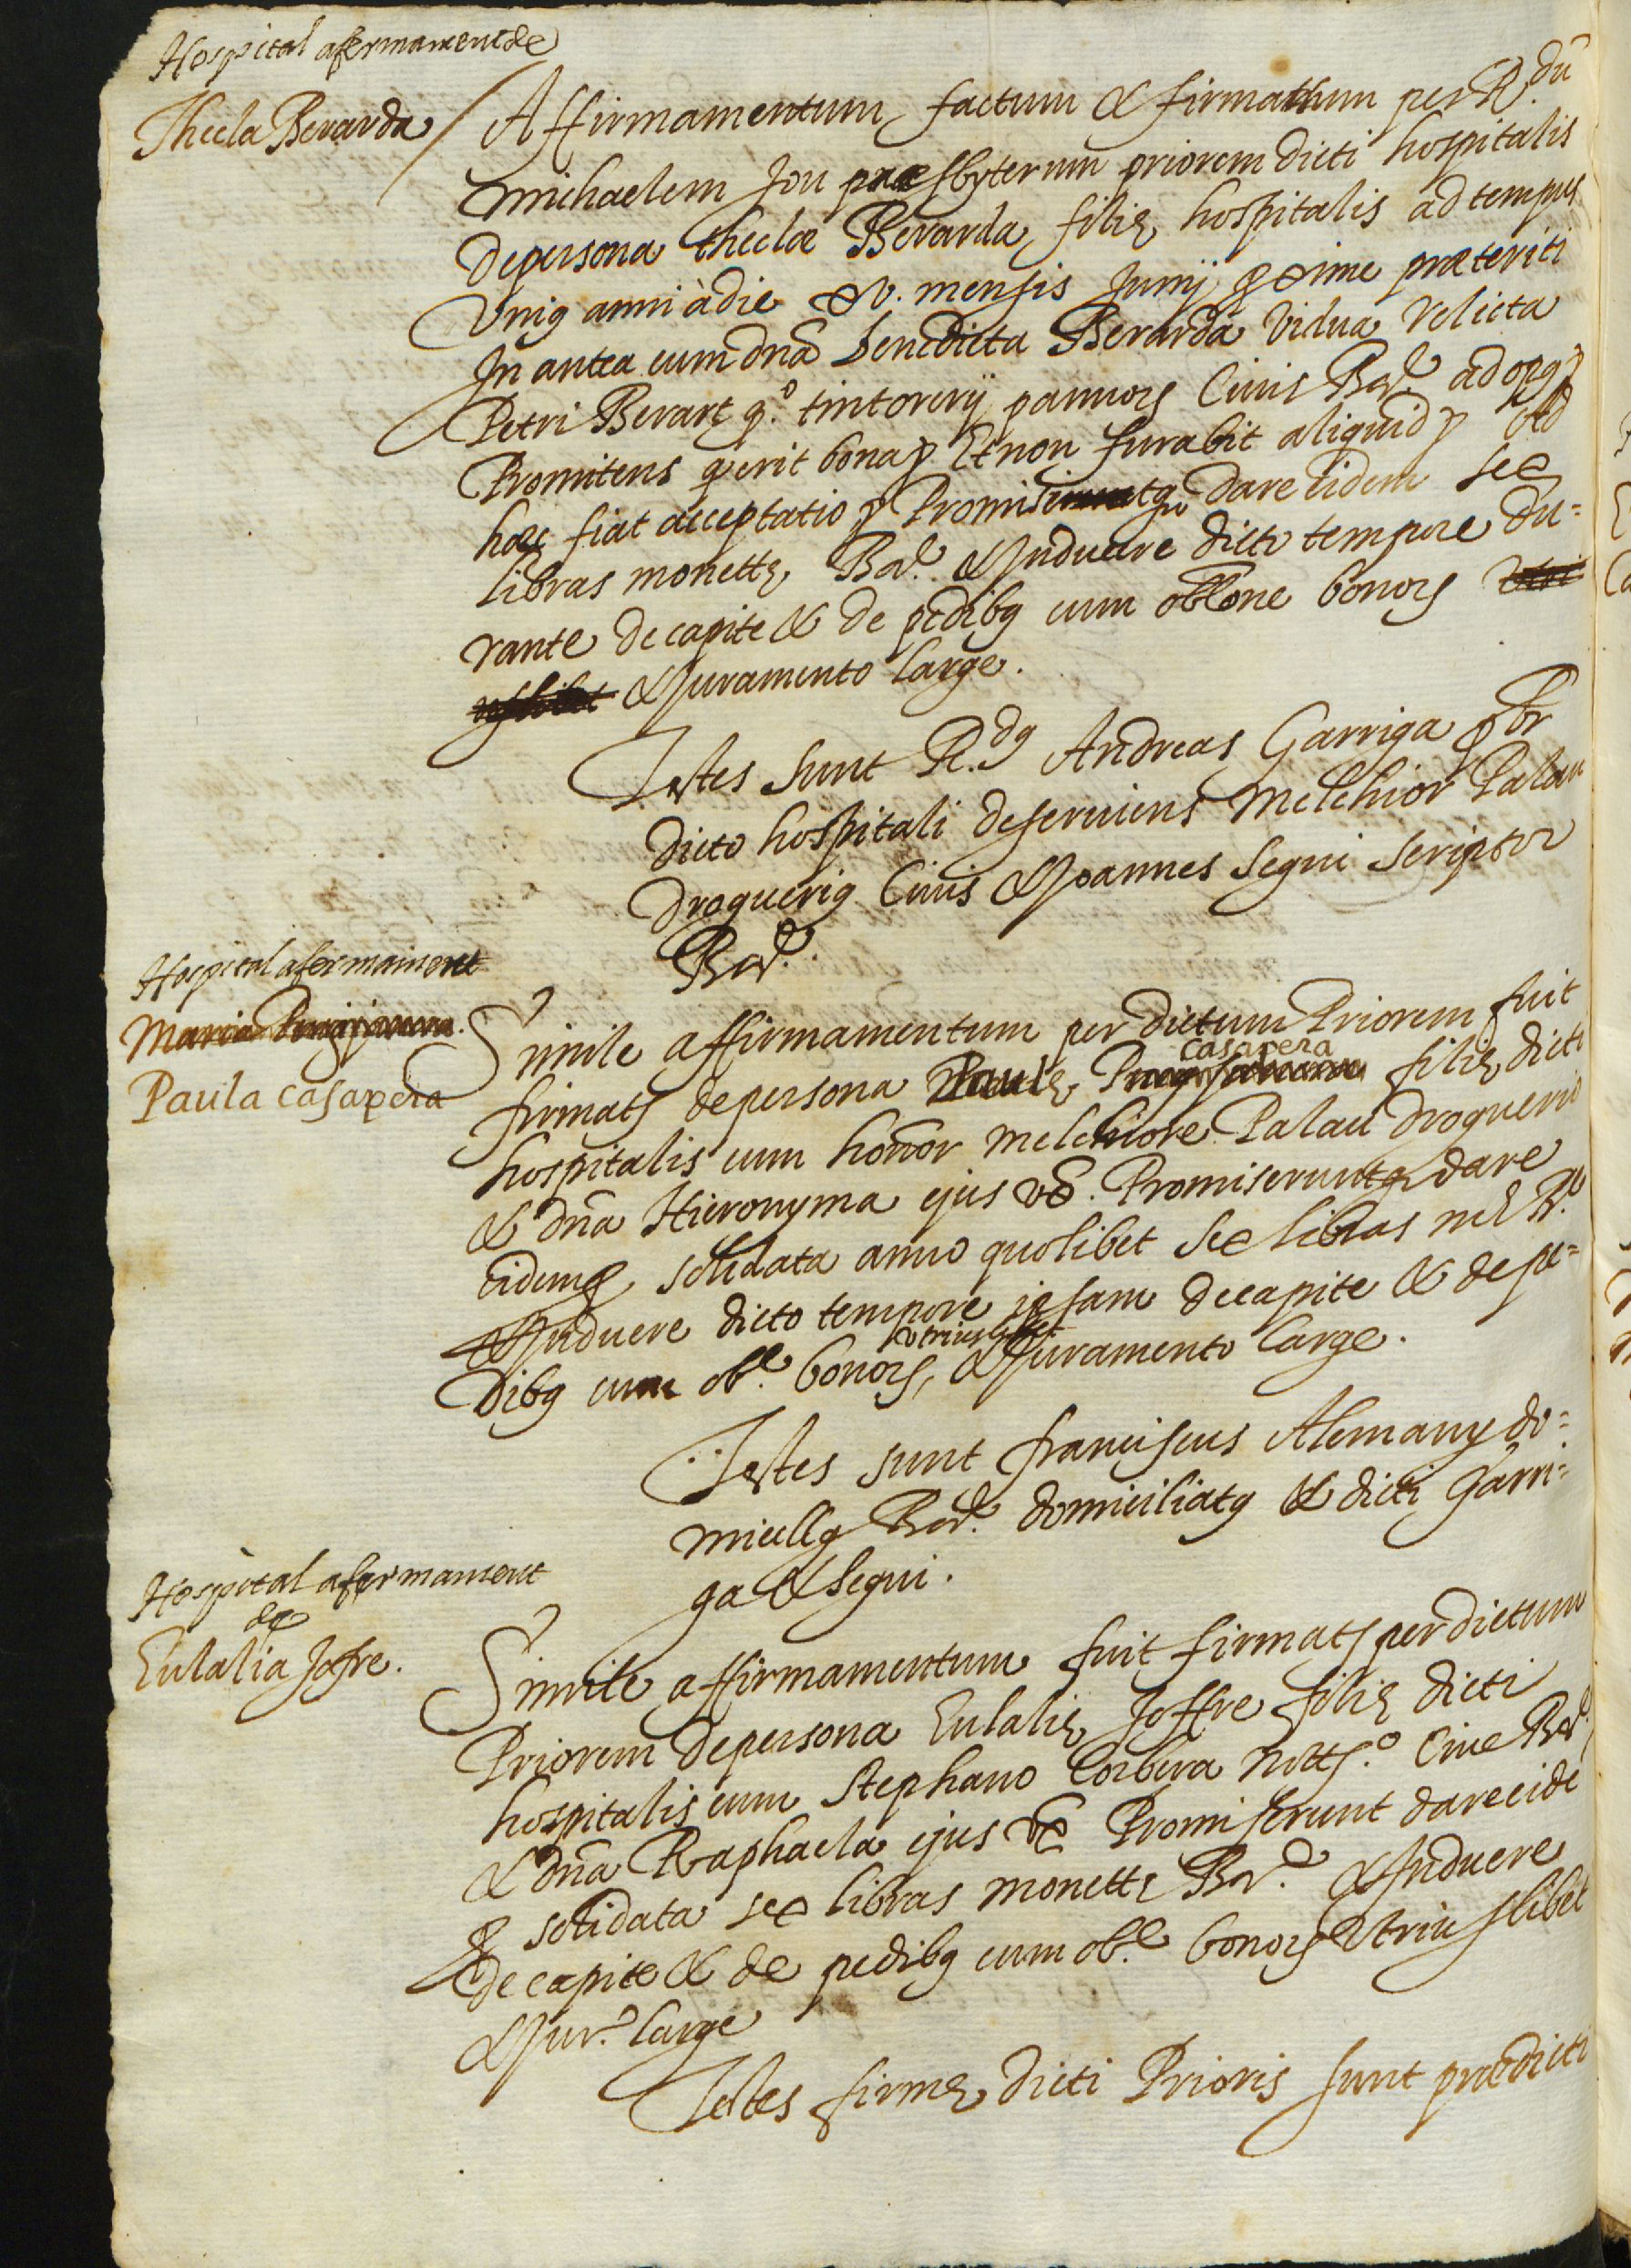 Hospital afermament de
Thecla Berarda
Affirmamentum factum & firmatum per R. dũ
Michaelem Jou præsbyterum priorem dicti hospitalis
de persona theclæ Berarda filię hospitalis ad tempus
Vniꝰ anni à die xv. mensis Junij proxime præteriti
In antea cum dña benedicta Berarda vidua relicta
Petri Berart qº. tintorerij pannorꝫ Ciuis Barᵉ. ad opꝰ
Promitens q̃ erit bona ꝑ Et non furabit aliquid ꝑ Ad
hæc fiat acceptatio ꝑ dare eidem sex
libras monettę Barᵉ. & Induere dicto tempore du=
rante de capite & de pedibꝰ cum oblõne bonorꝫ
& Juramento large.
Testes sunt R.dꝰ Andreas Garriga pbr
dicto hospitali deseruiens Melchior Palau
drogueriꝰ Ciuis & Joannes Segui scriptor
Barᵉ.
Hospital afermament
Maria Puigjaner.
Paula Casapera
Simile affirmamentum per dictum Priorem fuit
casapera
firmatꝫ de persona Paulę filię dicti
hospitalis cum honor Melchiore Palau droguerio
& dña Hieronyma ejus vẽ. Promiserunt dare
eidem ꝓ solidata anno quolibet sex libras mᵉ Bᵉ
& Induere dicto tempore ipsam de capite & de pe=
vtriuslibet
dibꝰ cum obᵉ. bonorꝫ, & Juramento large.
Testes sunt franciscus Alemany do=
micellꝰ Barᵉ. domiciliatꝰ & dicti Garri=
ga & Segui.
Hospital afermament
de
Eulalia Jofre.
Simile affirmamentum fuit firmatꝫ per dictum
Priorem de persona Eulalię Joffre filię dicti
hospitalis cum Stephano Corbera nottꝫ.º Ciue Barᵉ.
& dña Raphaela ejus vẽ Promiserunt dare eidẽ
ꝓ solidata sex libras monettę Barᵉ. & Induere
de capite & de pedibꝰ cum obᵉ. bonorꝫ vtriuslibet
& Jur.º large
Testes firmę dicti Prioris sunt prædicti